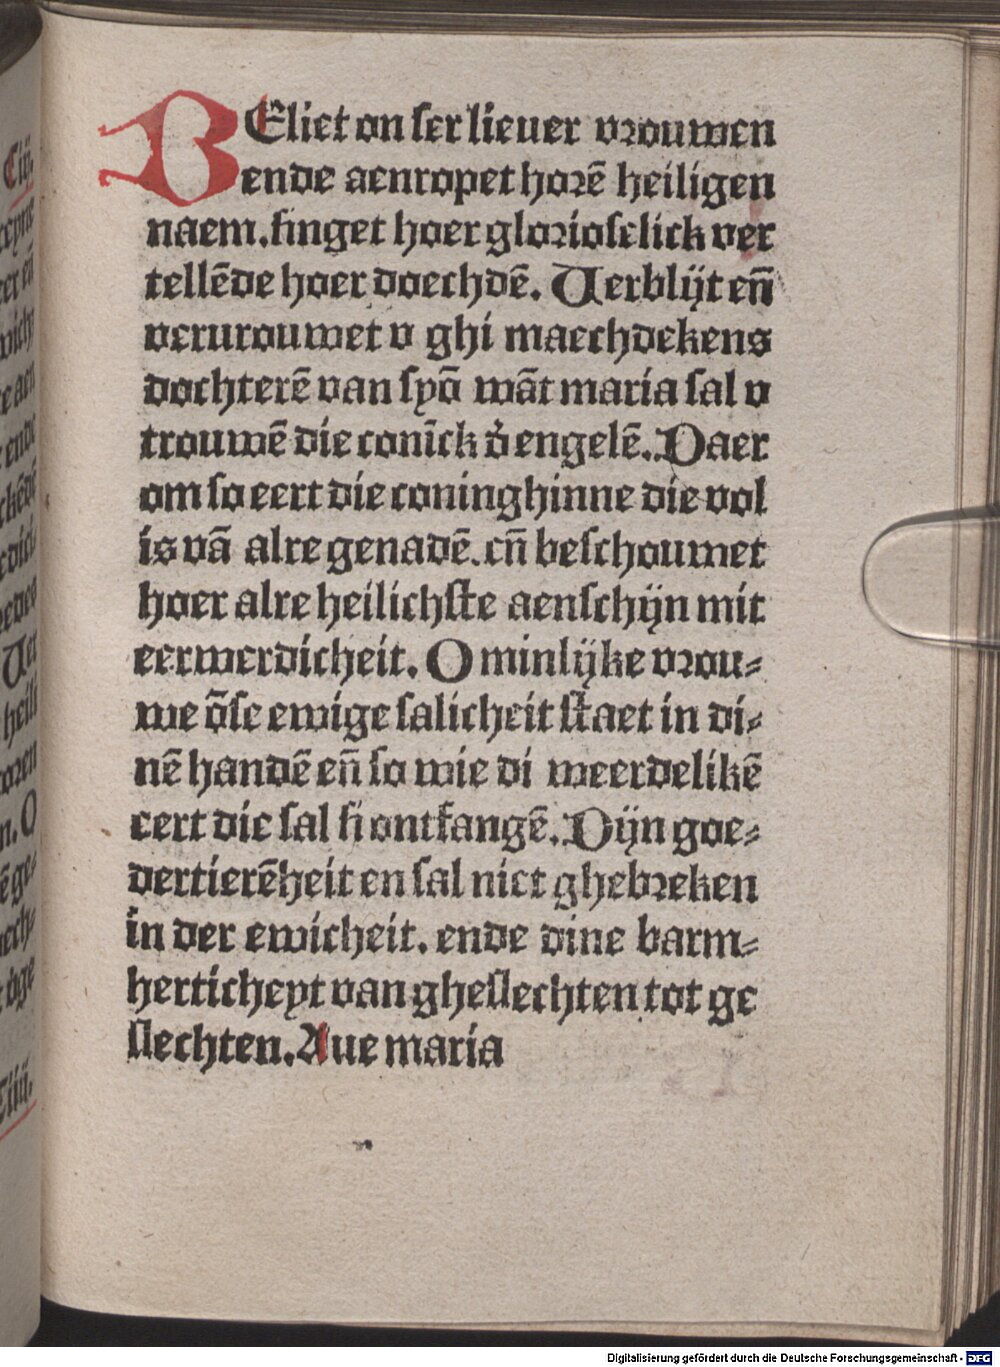 BEliet on ser lieuer vrouwen
ende aenropet horē heiligen
naem. singet hoer glorioselick ver
tellēde hoer doechdē. Uerblijt eñ
verurouwet v ghi maechdekens
dochterē van syō wāt maria sal v
trouwē die conīck d̓ engelē. Daer
om so eert die coninghinne die vol
is vā alre genadē. eñ beschouwet
hoer alre heilichste aenschijn mit
eerwerdicheit. O minlijke vrou⸗
we ōse ewige salicheit staet in di⸗
nē handē eñ so wie di weerdelikē
eert die sal si ontfangē. Dijn goe⸗
dertierēheit en sal niet ghebreken
in der ewicheit. ende dine barm⸗
herticheyt van gheslechten tot ge
slechten. Aue maria
Digitalisierung gefördert durch die Deutsche Forschungsgemeinschaft - DFG